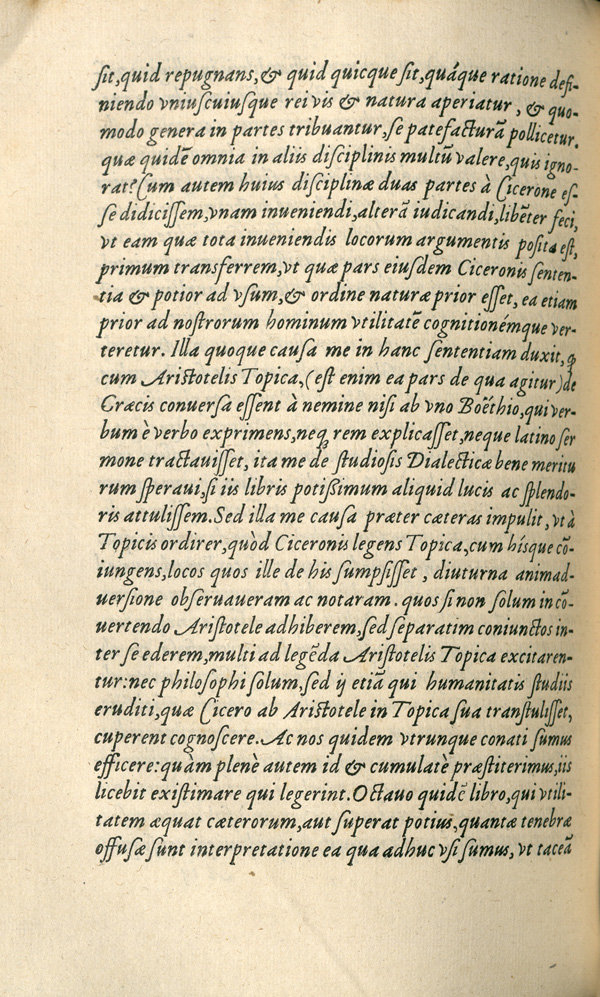 sit, quid repugnans, & quid quicque sit, quáque ratione defi-
niendo vniuscuiusque rei vis & natura aperiatur, & quo-
modo genera in partes tribuantur, se patefacturā pollicetur.
quæ quidē omnia in aliis disciplinis multū valere, quis igno-
rat? Cum autem huius disciplinæ duas partes à Cicerone es-
se didicissem, vnam inueniendi, alterā iudicandi, libēter feci,
vt eam quæ tota inueniendis locorum argumentis posita est,
primum transferrem, vt quæ pars eiusdem Ciceronis senten-
tia & potior ad vsum, & ordine naturæ prior esset, ea etiam
prior ad nostrorum hominum vtilitatē cognitionémque ver-
teretur. Illa quoque causa me in hanc sententiam duxit, ꝙ
cum Aristotelis Topica, (est enim ea pars de qua agitur) de
Græcis conuersa essent à nemine nisi ab vno Boëthio, qui ver-
bum è verbo exprimens, neq; rem explicasset, neque latino ser
mone tractauisset, ita me de studiosis Dialecticæ bene meritu
rum speraui, si iis libris potißimum aliquid lucis ac splendo-
ris attulissem. Sed illa me causa præter cæteras impulit, vt à
Topicis ordirer, quòd Ciceronis legens Topica, cum hísque cō-
iungens, locos quos ille de his sumpsisset, diuturna animad-
uersione obseruaueram ac notaram. quos si non solum in cō-
uertendo Aristotele adhiberem, sed separatim coniunctos in-
ter se ederem, multi ad legēda Aristotelis Topica excitaren-
tur: nec philosophi solum, sed ij etiā qui humanitatis studiis
eruditi, quæ Cicero ab Aristotele in Topica sua transtulisset,
cuperent cognoscere. Ac nos quidem vtrunque conati sumus
efficere: quàm plenè autem id & cumulatè præstiterimus, iis
licebit existimare qui legerint. Octauo quidē libro, qui vtili-
tatem æquat cæterorum, aut superat potius, quantæ tenebræ
offusæ sunt interpretatione ea qua adhuc vsi sumus, vt taceā